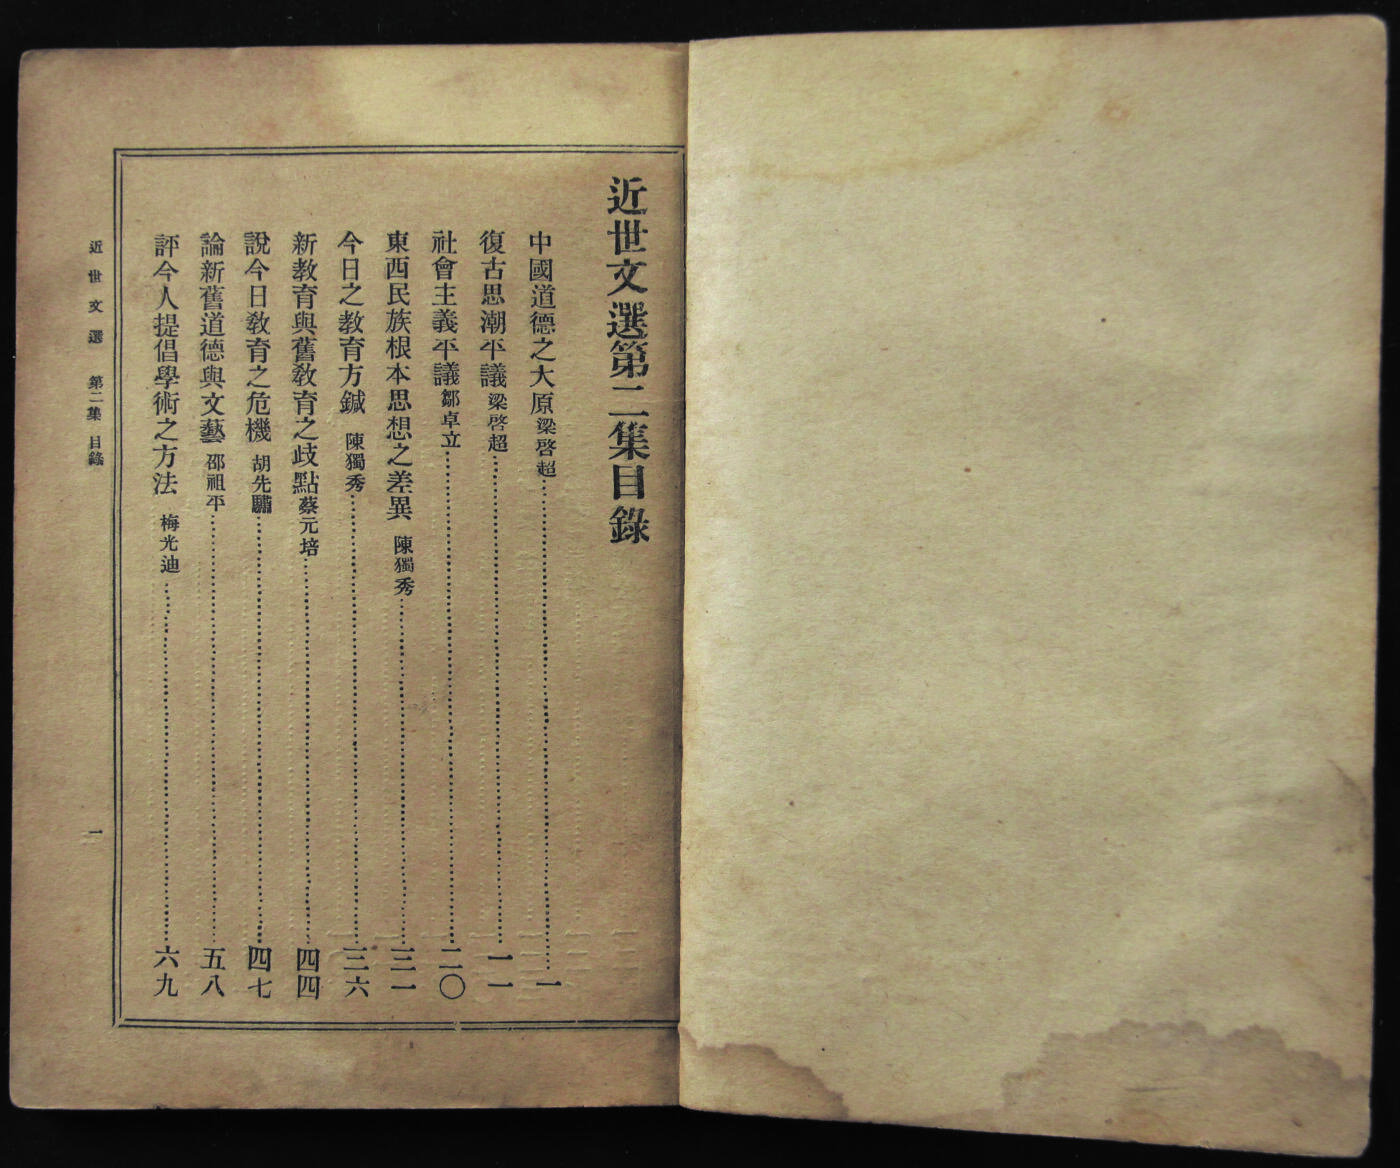 近世文選第二集目錄
中國道德之大原 梁啓超…………一
復古思潮平議 梁啓超…………一一
社會主義平議 鄒卓立…………二〇
東西民族根本思想之差異 陳獨秀…………三一
今日之教育方鍼 陳獨秀…………三六
新教育與舊教育之歧點 蔡元培…………四四
說今日教育之危機 胡先驌…………四七
論新舊道德與文藝 邵祖平…………五八
評今人提倡學術之方法 梅光迪…………六九
近世文選 第二集 目錄 一